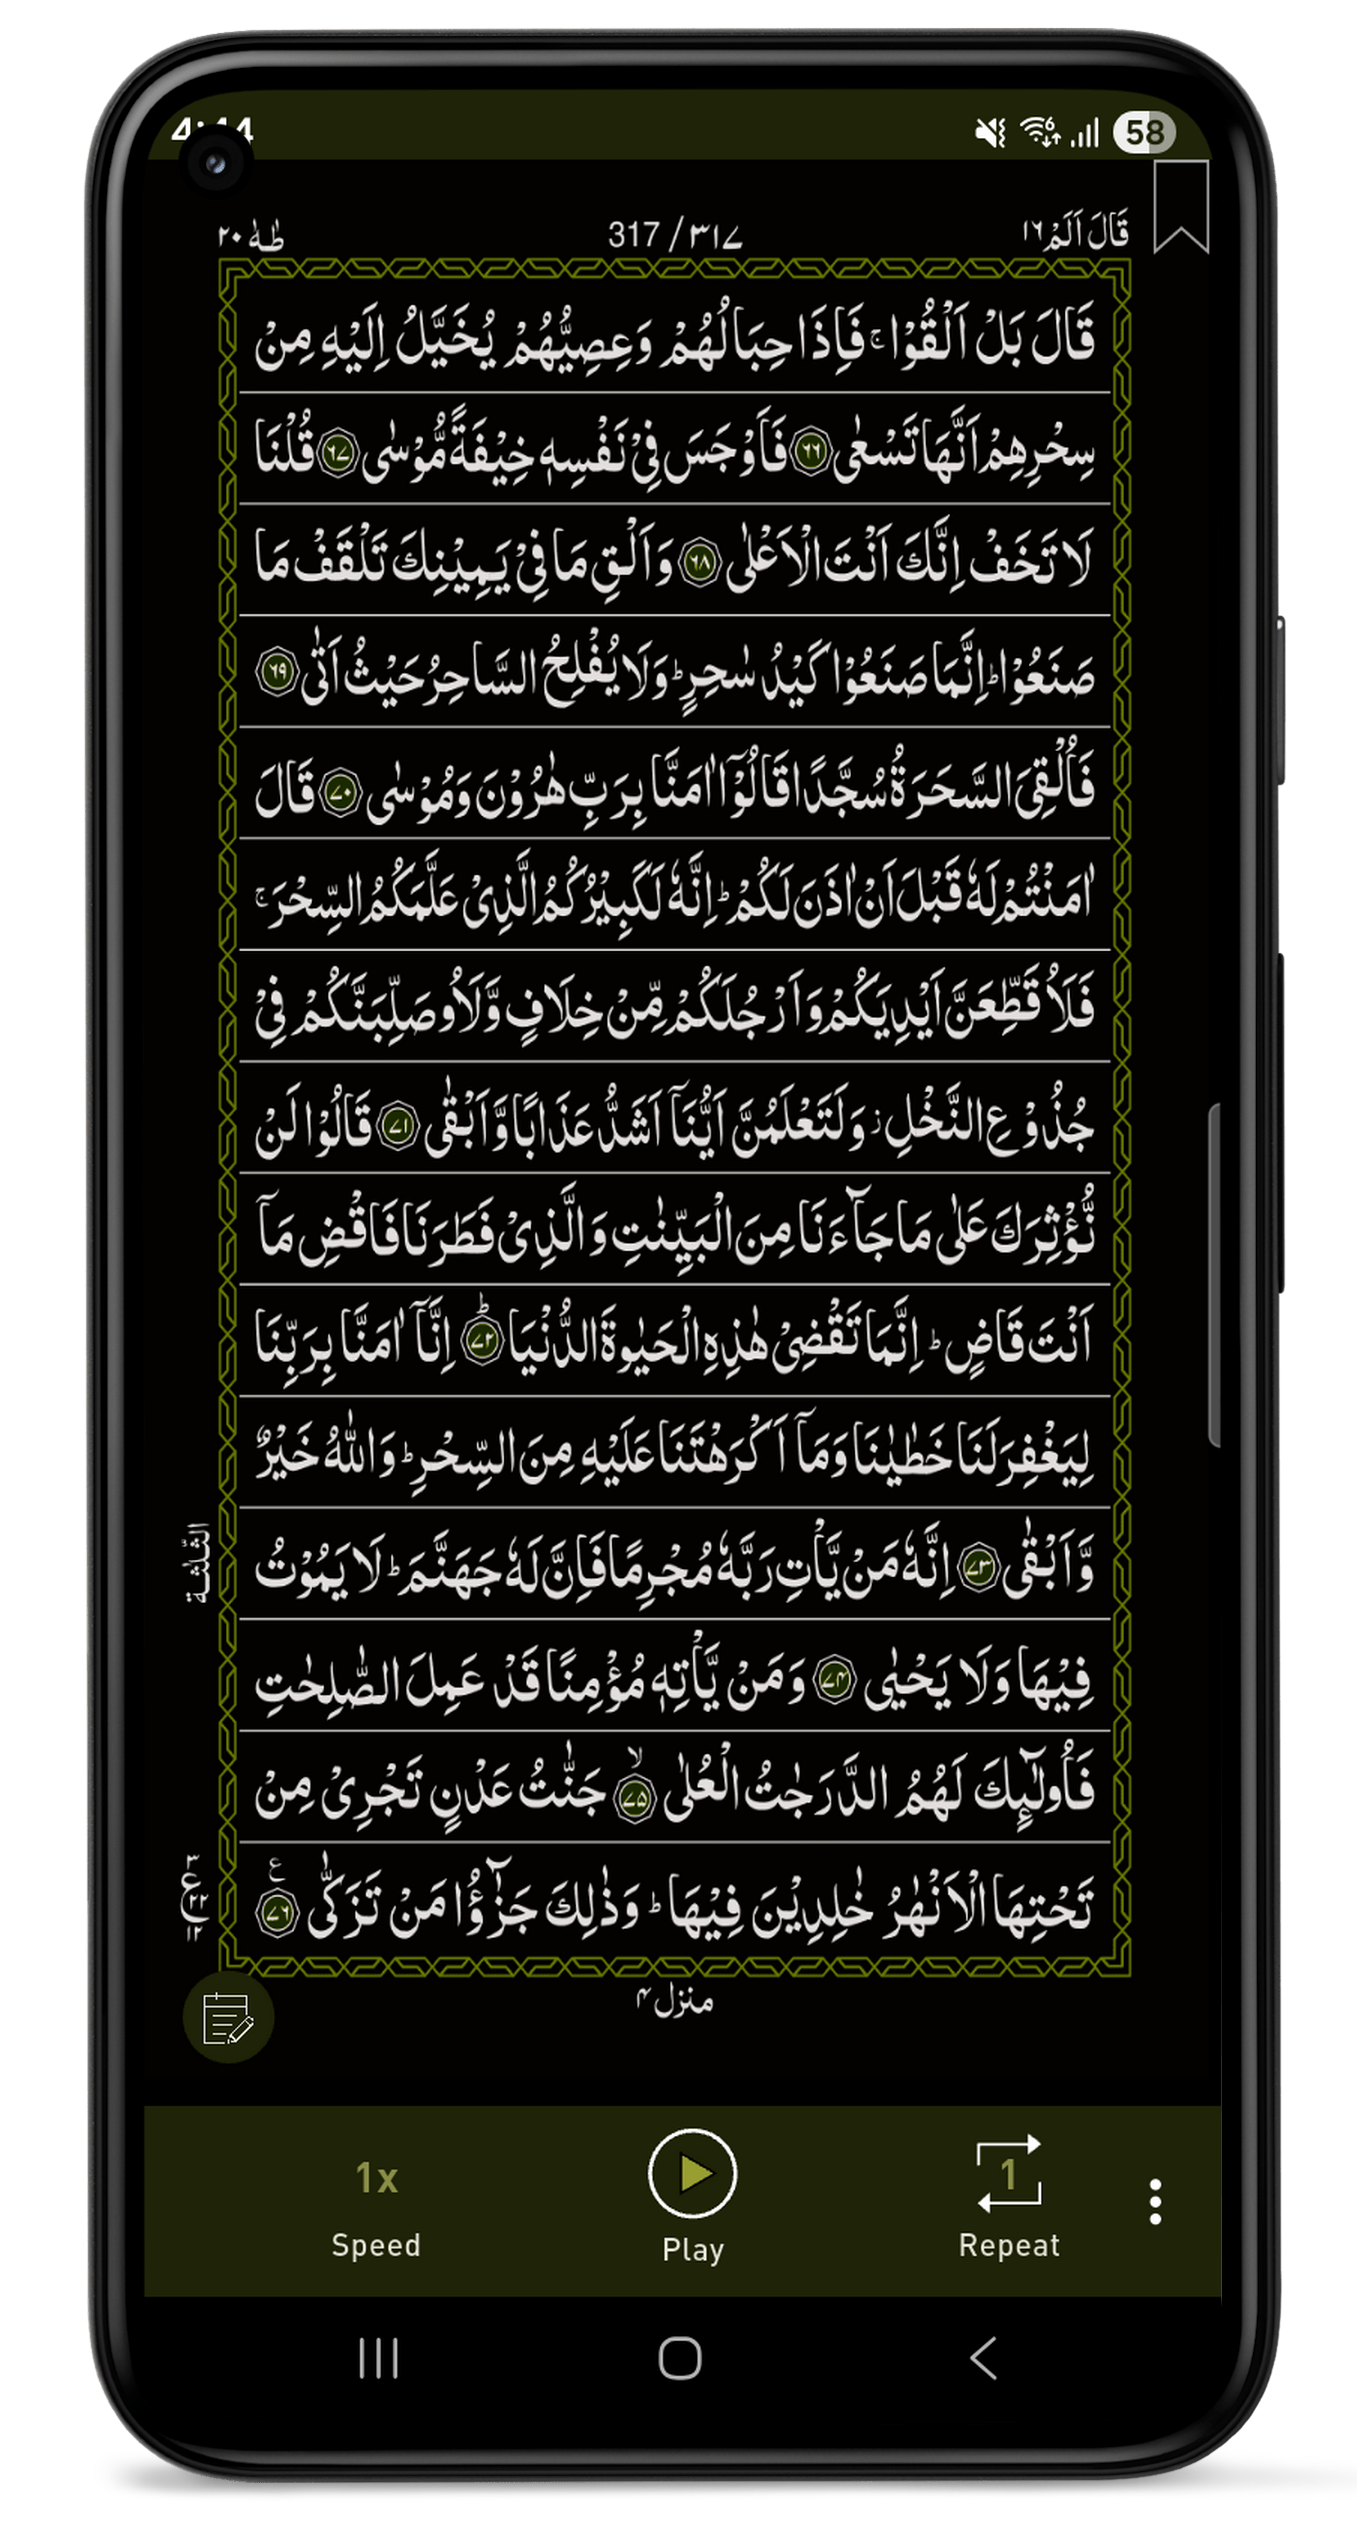 58
طٰهٰ ٢٠
317 / ٣١٧
قَالَ اَلَمْ ١٦
قَالَ بَلْ اَلْقُوْا ۚ فَاِذَا حِبَالُهُمْ وَعِصِيُّهُمْ يُخَيَّلُ اِلَيْهِ مِنْ
سِحْرِهِمْ اَنَّهَا تَسْعٰى ٦٦ فَاَوْجَسَ فِىْ نَفْسِهٖ خِيْفَةً مُّوْسٰى ٦٧ قُلْنَا
لَا تَخَفْ اِنَّكَ اَنْتَ الْاَعْلٰى ٦٨ وَاَلْقِ مَا فِىْ يَمِيْنِكَ تَلْقَفْ مَا
صَنَعُوْا ؕ اِنَّمَا صَنَعُوْا كَيْدُ سٰحِرٍ ؕ وَلَا يُفْلِحُ السَّاحِرُ حَيْثُ اَتٰى ٦٩
فَاُلْقِىَ السَّحَرَةُ سُجَّدًا قَالُوْۤا اٰمَنَّا بِرَبِّ هٰرُوْنَ وَمُوْسٰى ٧٠ قَالَ
اٰمَنْتُمْ لَهٗ قَبْلَ اَنْ اٰذَنَ لَكُمْ ؕ اِنَّهٗ لَكَبِيْرُكُمُ الَّذِىْ عَلَّمَكُمُ السِّحْرَ ۚ
فَلَاُقَطِّعَنَّ اَيْدِيَكُمْ وَاَرْجُلَكُمْ مِّنْ خِلَافٍ وَّلَاُوصَلِّبَنَّكُمْ فِىْ
جُذُوْعِ النَّخْلِ ز وَلَتَعْلَمُنَّ اَيُّنَاۤ اَشَدُّ عَذَابًا وَّاَبْقٰى ٧١ قَالُوْا لَنْ
نُّؤْثِرَكَ عَلٰى مَا جَآءَنَا مِنَ الْبَيِّنٰتِ وَالَّذِىْ فَطَرَنَا فَاقْضِ مَاۤ
اَنْتَ قَاضٍ ؕ اِنَّمَا تَقْضِىْ هٰذِهِ الْحَيٰوةَ الدُّنْيَا ؕ ٧٢ اِنَّاۤ اٰمَنَّا بِرَبِّنَا
لِيَغْفِرَ لَنَا خَطٰيٰنَا وَمَاۤ اَكْرَهْتَنَا عَلَيْهِ مِنَ السِّحْرِ ؕ وَاللّٰهُ خَيْرٌ
وَّاَبْقٰى ٧٣ اِنَّهٗ مَنْ يَّاْتِ رَبَّهٗ مُجْرِمًا فَاِنَّ لَهٗ جَهَنَّمَ ؕ لَا يَمُوْتُ
الثلٰثة
فِيْهَا وَلَا يَحْيٰى ٧٤ وَمَنْ يَّاْتِهٖ مُؤْمِنًا قَدْ عَمِلَ الصّٰلِحٰتِ
فَاُولٰٓئِكَ لَهُمُ الدَّرَجٰتُ الْعُلٰى ۙ ٧٥ جَنّٰتُ عَدْنٍ تَجْرِىْ مِنْ
تَحْتِهَا الْاَنْهٰرُ خٰلِدِيْنَ فِيْهَا ؕ وَذٰلِكَ جَزٰٓؤُا مَنْ تَزَكّٰى ع ٧٦
٣
ع ٢٢
١٢
منزل ٤
1x
1
Speed
Play
Repeat